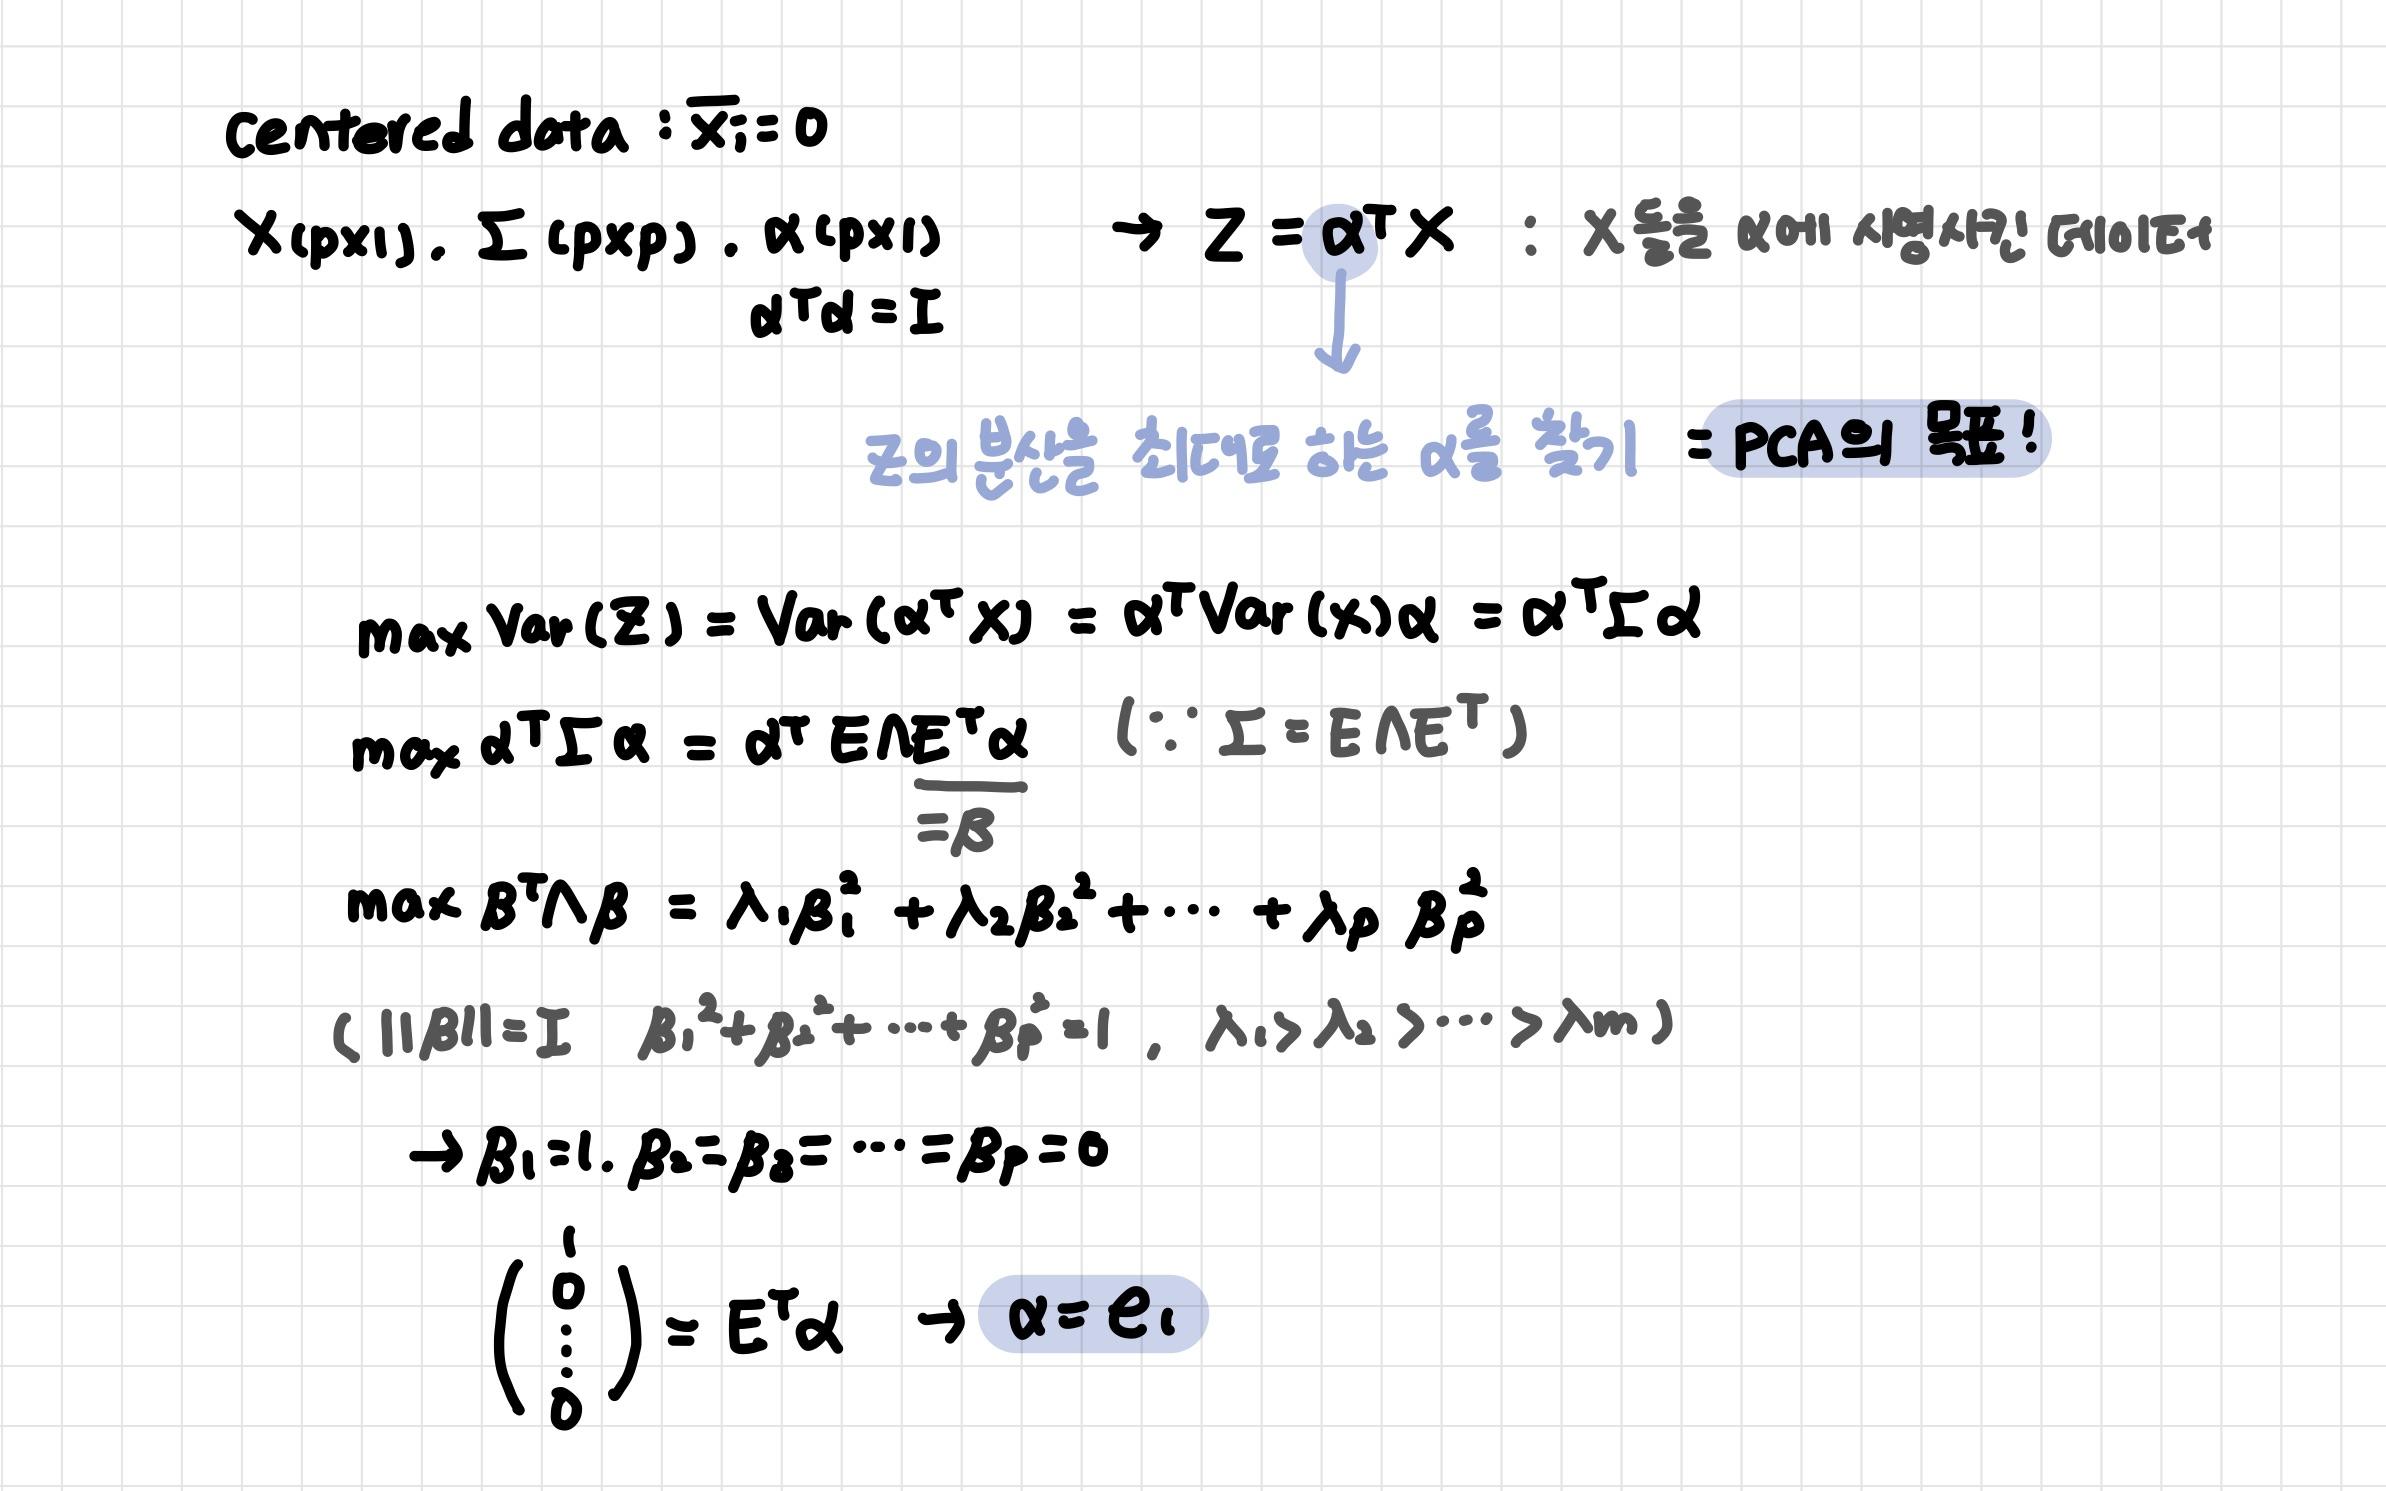 centered data : x̄ᵢ = 0
X(p×1). Σ(p×p). α(p×1) → Z = αᵀX : X들을 α에 사영시킨 데이터
αᵀα = I
Z의 분산을 최대로 하는 α를 찾기 = PCA의 목표!
max Var(Z) = Var(αᵀX) = αᵀVar(x)α = αᵀΣα
max αᵀΣα = αᵀEΛEᵀα (∵ Σ = EΛEᵀ)
≡β
max βᵀΛβ = λ₁β₁² + λ₂β₂² + ··· + λp βp²
(||β|| = I β₁² + β₂² + ··· + βp² = 1, λ₁ > λ₂ > ··· > λm)
→ β₁ = 1. β₂ = β₃ = ··· = βp = 0
(1 0 ⋮ 0) = Eᵀα → α = e₁